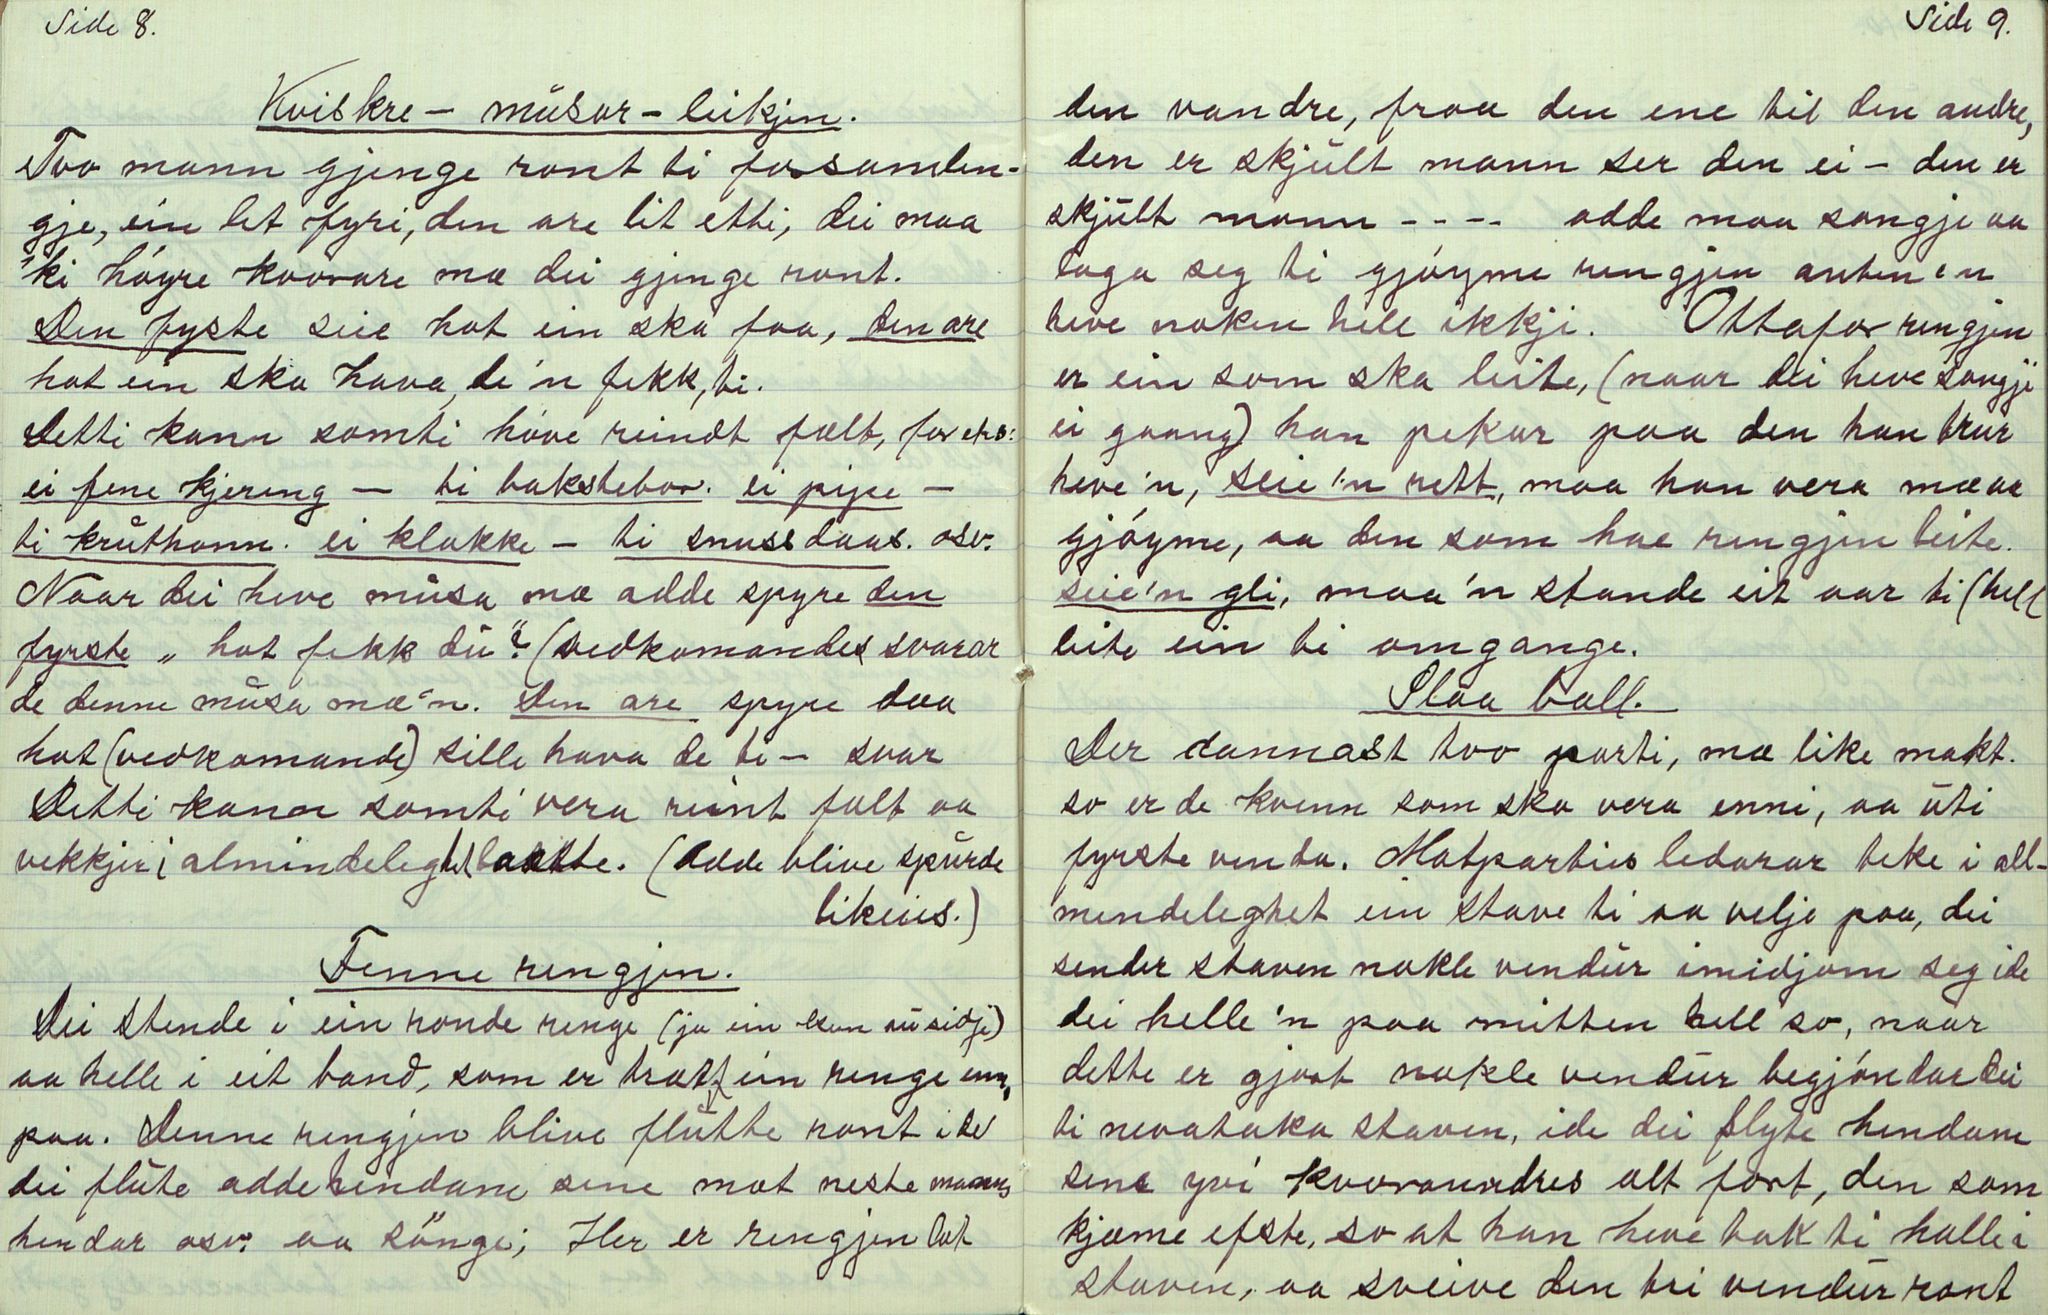 Side 8.
Kviskre – mūsar – leikjen.
Tvo mann gjenge ront ti forsamlen-
gje, ein let fyri, den are lit etti, dei maa
'ki höyre kvorare mæ dei gjenge ront.
Den fyste seie hot ein ska faa, den are
hot ein ska hava, de'n fekk, ti.
Detti kann somti höve reindt falt, for eks:
ei fene kjering – ti bakstebor. ei pipe –
ti krūthonn. ei klokke – ti snussdaas. osv.
Naar dei heve mūsa mæ adde spyre den
fyrste „ hot fekk dū"? (vedkomandes svarar
de denne mūsa mæ'n. Den are spyre daa
hot (vedkomande) sille hava de ti – svar
Detti kann somti vera reint falt aa
vekkjer i almindeleghet laatte. (Adde blive spūrde
likeins.)
Fenne rengjen.
Dei stende i ein ronde renge (ja ein kan au sidji)
aa helle i eit band, som er trætt ein renge inn,
paa. Denne rengjen blive flūtte ront i de
dei flūte adde hendane sine mot neste manns
hendar osv. aa sōnge; Her er rengjen lat
Side 9.
den vandre, fraa den ene til den andre,
den er skjūlt mann ser den ei – den er
skjūlt mann - - - - adde maa songje aa
laga seg ti gjöyme rengjen anten en
heve noken hell ikkji. Ottafor rengjen
er ein som ska leite, (naar dei heve songji
ei gaang) han pekar paa den han trur
heve'n, seie'n rett, maa han vera mæ aa
gjöyme, aa den som hae rengjen leite.
seie'n gli, maa'n stande eit aar ti (hell
leite ein ti omgange.
Slaa ball.
Der dannast tvo parti, mæ like makt.
so er de kvenn som ska vera enni, aa ūti
fyrste venda. Motparties ledarar teke i all-
mendeleghet ein stave ti aa velje paa, dei
sender staven nokle vendūr imidjom seg ide
dei helle'n paa mitten hell so, naar
dette er gjort nokle vendūr begjöndar dei
ti nevataka staven, ide dei flyte hendane
sene yvi kvorandres alt fort, den som
kjæme efste, so at han heve tak ti halle i
staven, aa sveive den tri vendūr ront